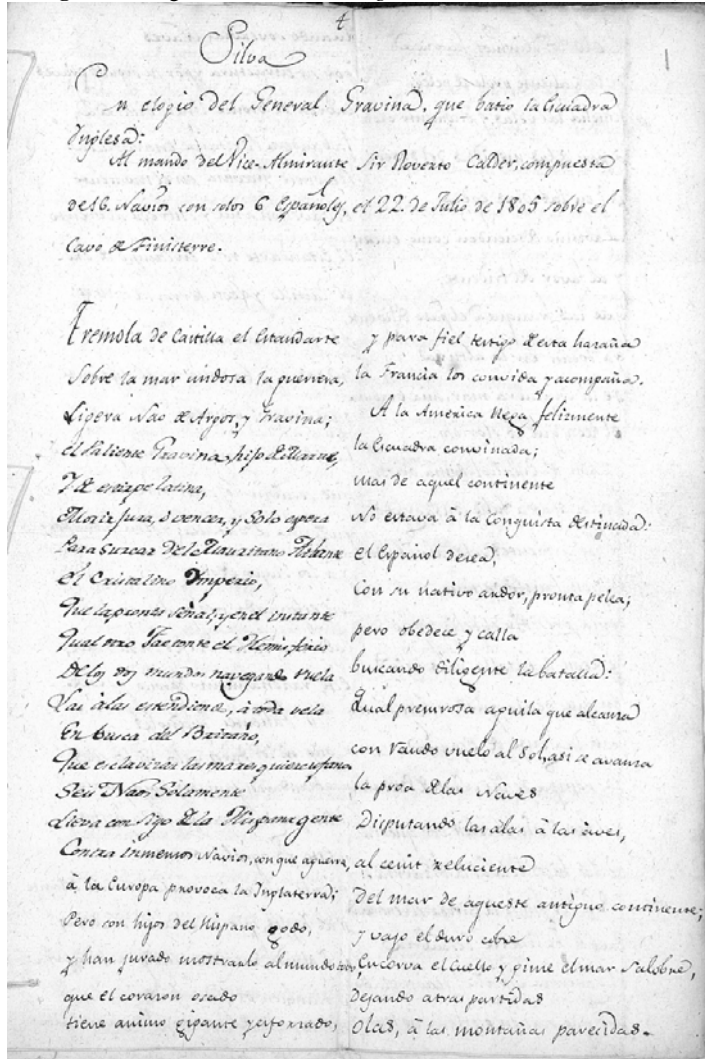 4
Silva
En elogio del General Gravina, que batio la Escuadra
Ynglesa:
Al mando del Vice-Almirante Sir Roverto Calder, compuesta
de 16. Navios con solos 6 Españoles, el 22 de Julio de 1805 sobre el
Cavo de Finisterre.
Tremola de Castilla el Estandarte
Sobre la mar undosa la guerrera,
Ligera Nao de Argos, y Gravina;
el Valiente Gravina, hijo de Marte,
Y de estirpe latina,
Morir jura, ó vencer, y Solo espera
Para surcar del Mauritano Atlante
El Cristalino Ymperio,
Que la pronta señal; y en el instante
Qual otro Faetonte el Hemisferio
De los dos mundos navegando vuela
Las alas estendiendo, à toda vela
En busca del Britano,
Que esclavizar los mares quiere ufano
Seis Naos Solamente
Lleva con sigo de la Hispana gente
Contra inmensos Navios, con que aguerra,
à la Europa provoca la Inglaterra;
Pero son hijos del Hispano godo,
y han jurado mostrarlo al mundo todo,
que el corazon osado
tiene animo gigante y esforzado,
y para fiel testigo de esta hazaña
la Francia los convida y acompaña.
A la America llega felizmente
la Escuadra convinada;
mas de aquel continente
No estava à la Conquista destinada:
el Español desea,
Con su nativo ardor, pronta pelea;
pero obedece y calla
buscando diligente la batalla:
Qual presurosa aguila que alcanza
con raudo vuelo al Sol, asi se avanza
la proa de las Naves
Disputando las alas à las aves,
al cenit reluciente
Del mar de aqueste antiguo continente;
y vajo el duro cobre
Encorva el Cuello y gime el mar Salobre,
Dejando atras partidas
Olas, à las montañas parecidas.